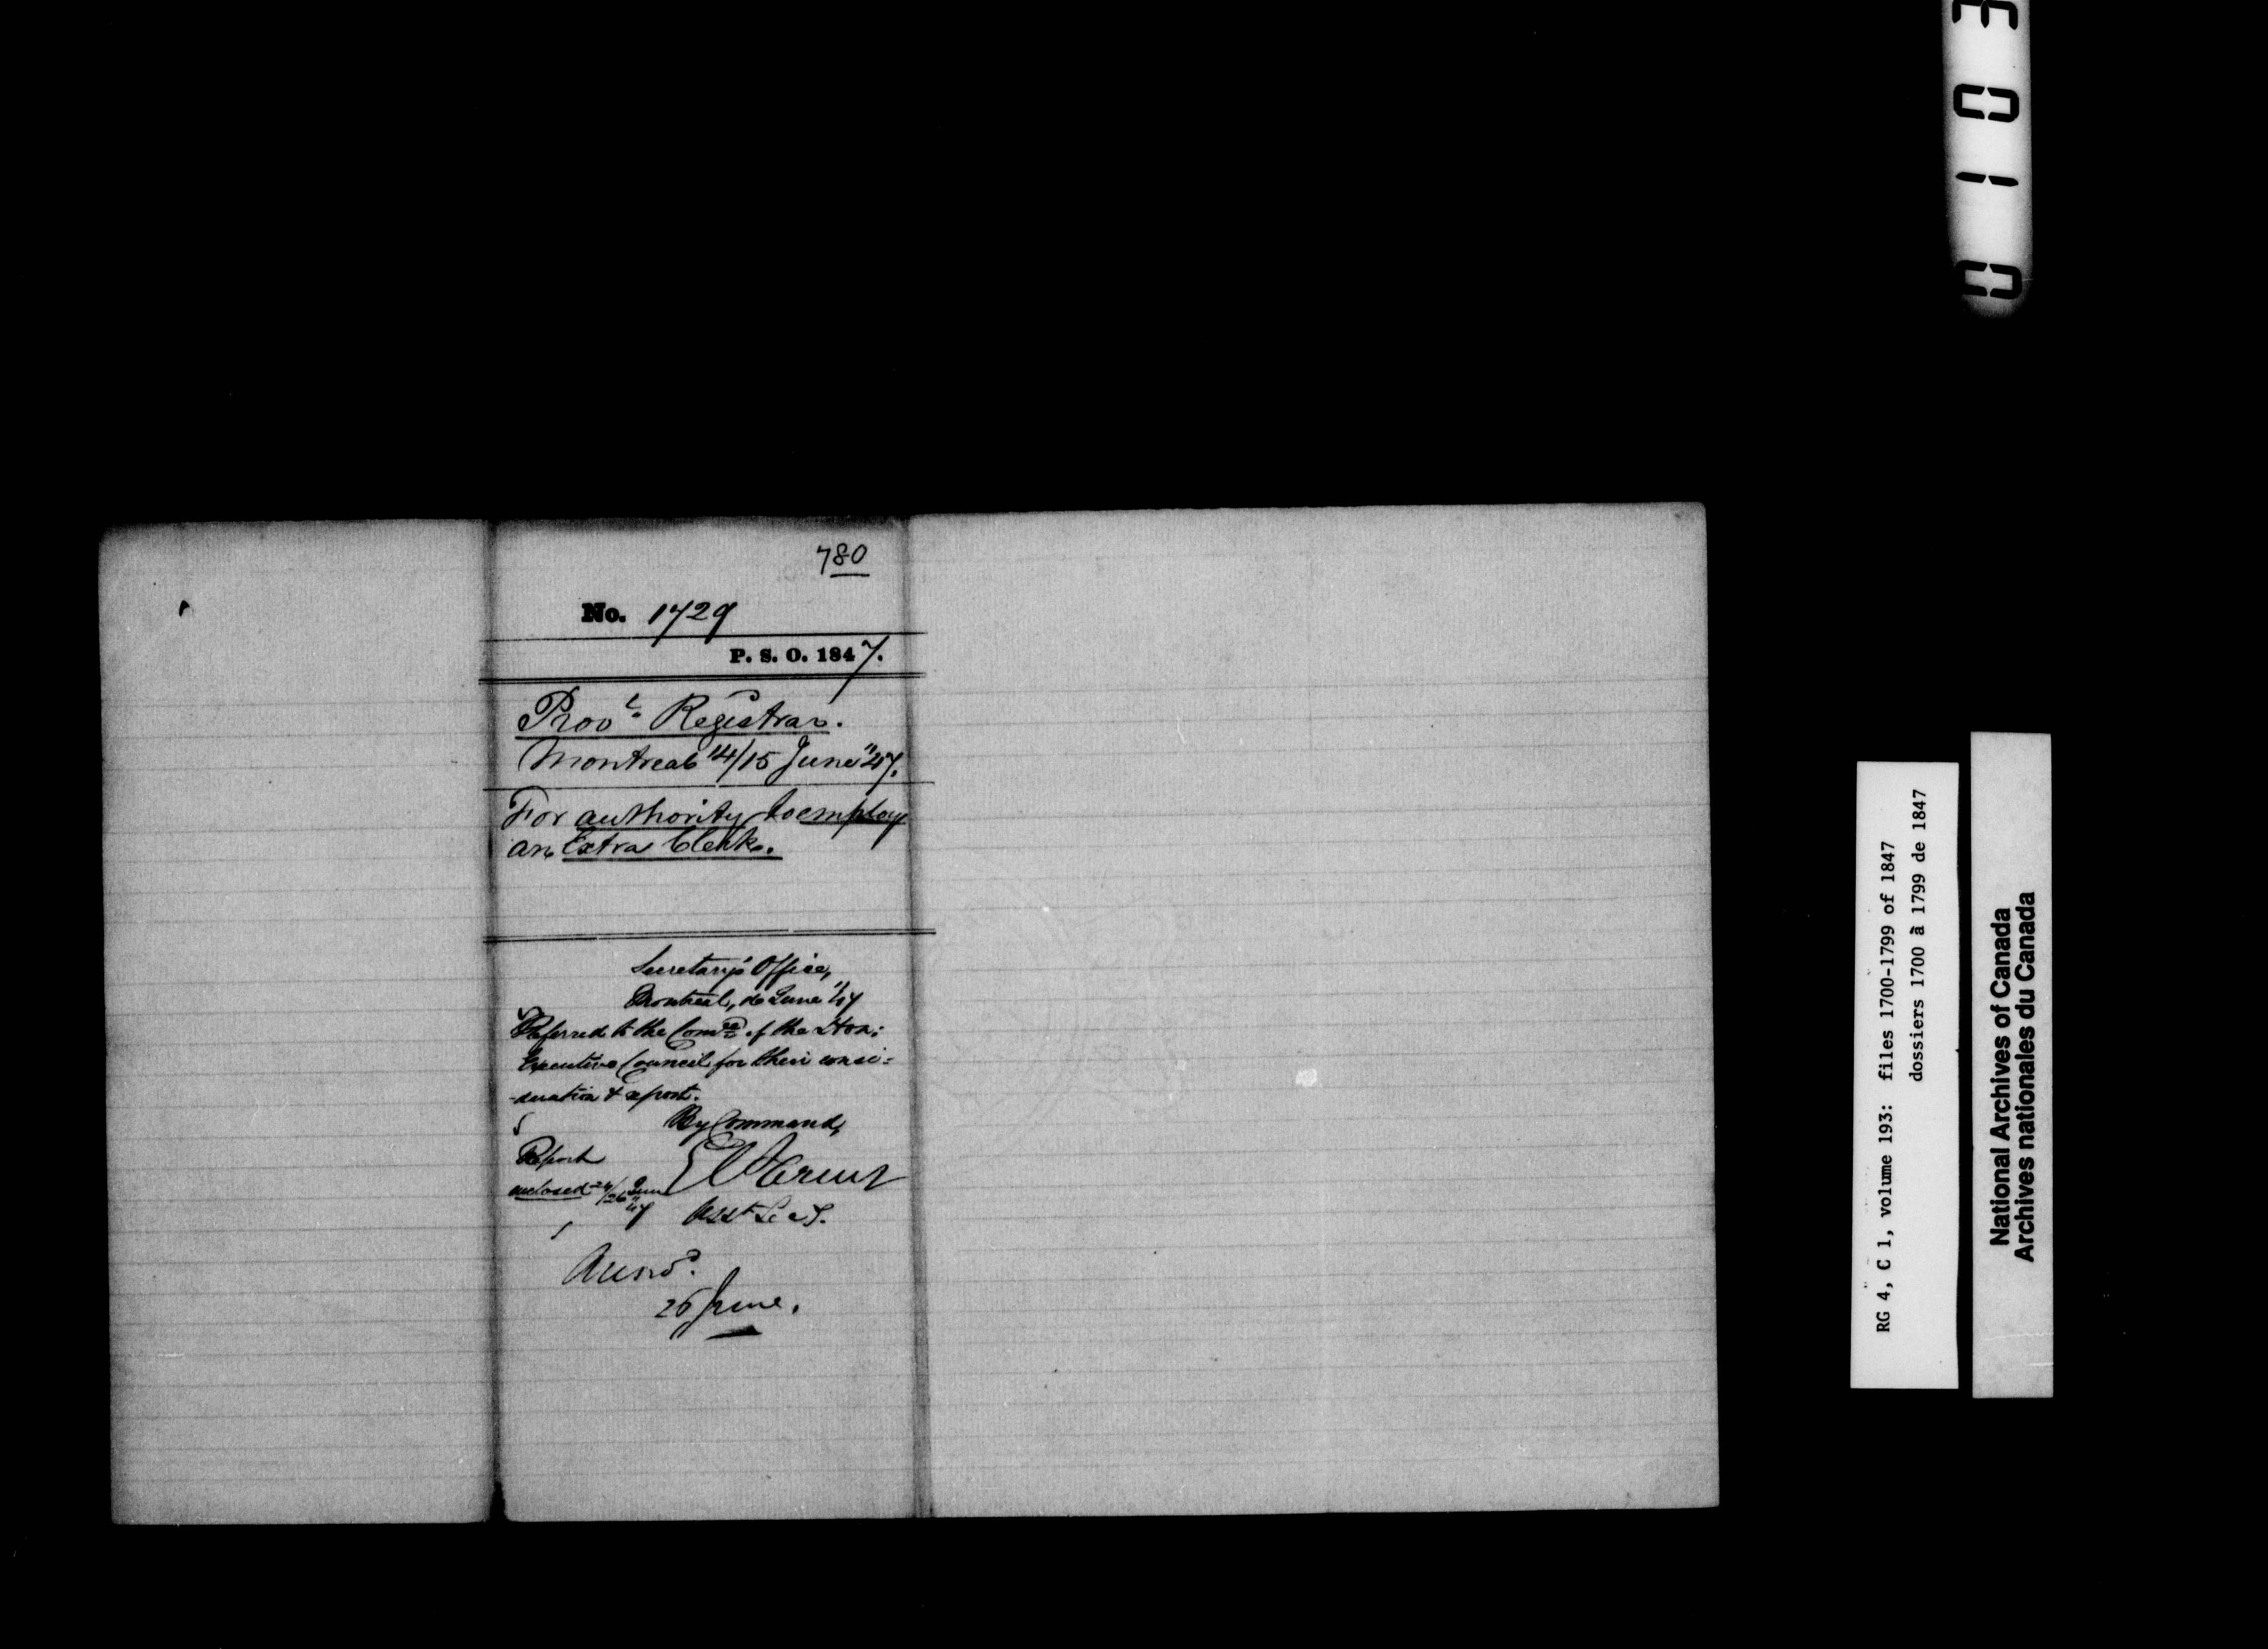 780
No. 1729
P. S. O. 1847.
Prov.l Registrar.
Montreal 14/15 June "47.
For authority to employ
an Extra Clerk.
Secretary's Office,
Montreal, June "47
Referred to the Comee of the Hon:
Executive Council for their consi=
-deration & report.
By Command,
Report
enclosed 24/26 June
"47
Asst Secy.
Answd.
26 June.
0103
RG 4, C 1, volume 193: files 1700-1799 of 1847
dossiers 1700 à 1799 de 1847
National Archives of Canada
Archives nationales du Canada